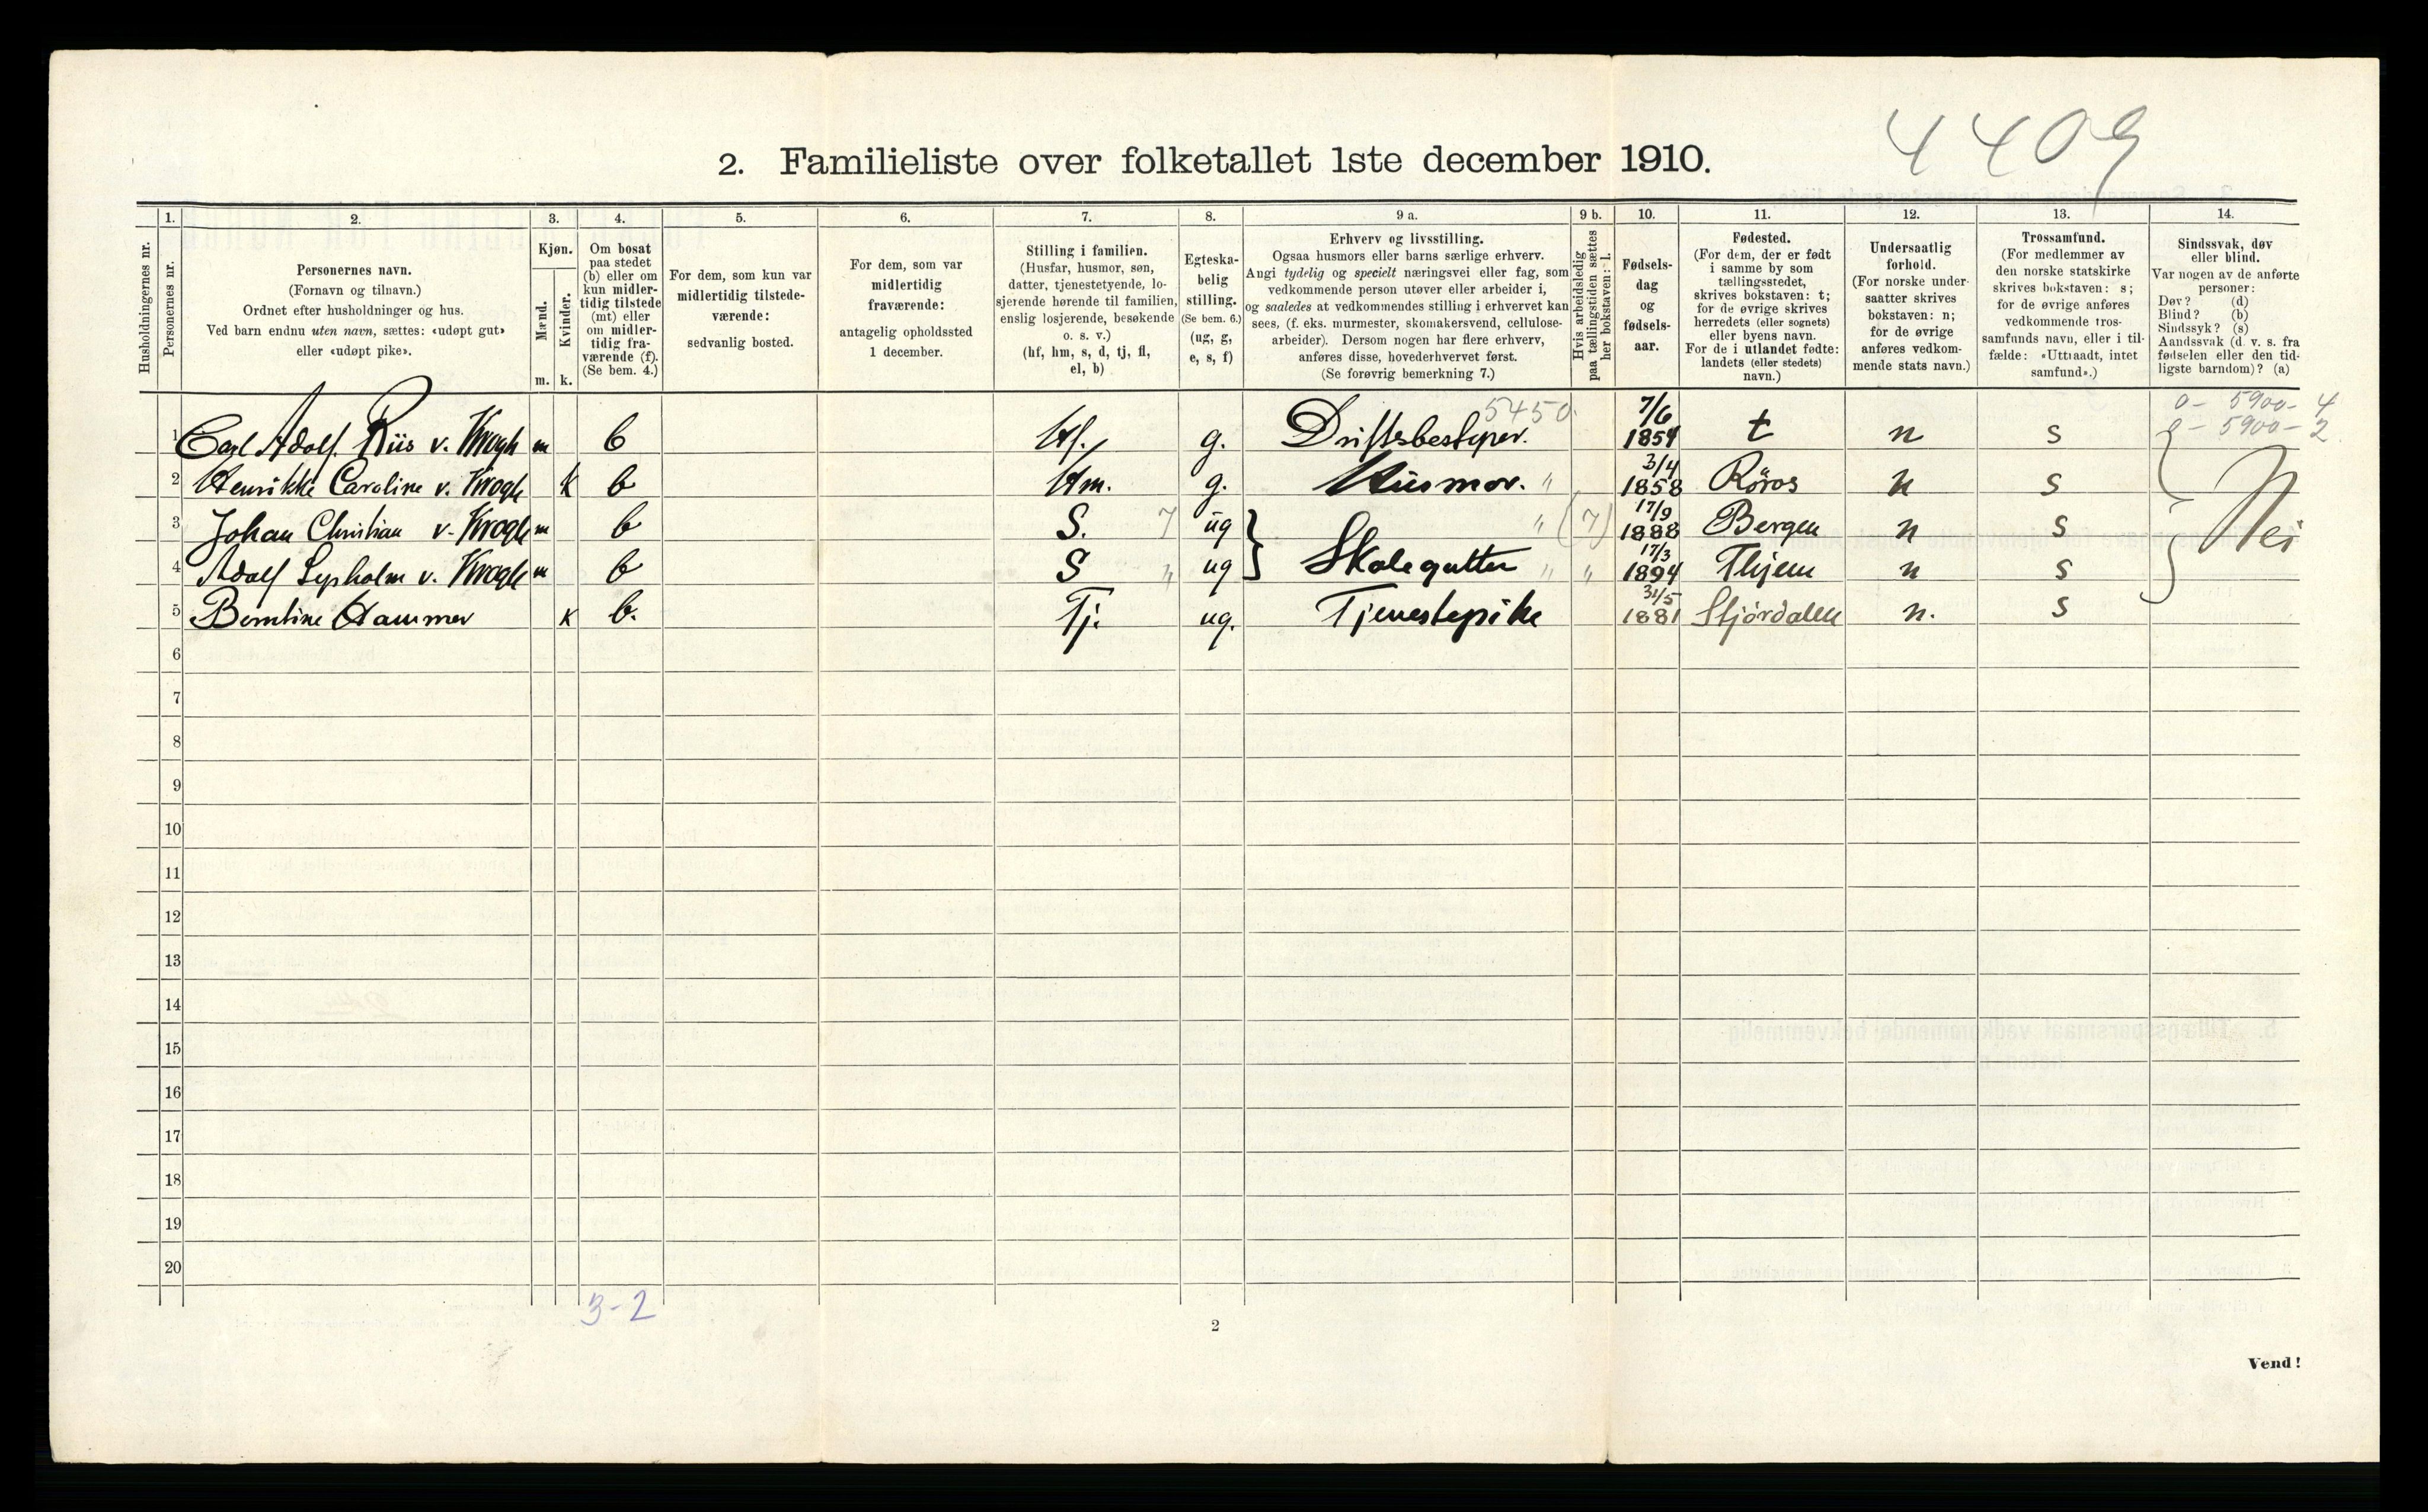 4409
2. Familieliste over folketallet 1ste december 1910.
Husholdningernes nr.
1.
Personernes nr.
2.
Personernes navn.
(Fornavn og tilnavn.)
Ordnet efter husholdninger og hus.
Ved barn endnu uten navn, sættes: «udøpt gut»
eller «udøpt pike».
3.
Kjøn.
Mænd.
m.
Kvinder.
k.
4.
Om bosat
paa stedet
(b) eller om
kun midler-
tidig tilstede
(mt) eller
om midler-
tidig fra-
værende (f).
(Se bem. 4.)
5.
For dem, som kun var
midlertidig tilstede-
værende:
sedvanlig bosted.
6.
For dem, som var
midlertidig
fraværende:
antagelig opholdssted
1 december.
7.
Stilling i familien.
(Husfar, husmor, søn,
datter, tjenestetyende, lo-
sjerende hørende til familien,
enslig losjerende, besøkende
o. s. v.)
(hf, hm, s, d, tj, fl,
el, b)
8.
Egteska-
belig
stilling.
(Se bem. 6.)
(ug, g,
e, s, f)
9 a.
Erhverv og livsstilling.
Ogsaa husmors eller barns særlige erhverv.
Angi tydelig og specielt næringsvei eller fag, som
vedkommende person utøver eller arbeider i,
og saaledes at vedkommendes stilling i erhvervet kan
sees, (f. eks. murmester, skomakersvend, cellulose-
arbeider). Dersom nogen har flere erhverv,
anføres disse, hovederhvervet først.
(Se forøvrig bemerkning 7.)
9 b.
Hvis arbeidsledig
paa tællingstiden sættes
her bokstaven: l.
10.
Fødsels-
dag
og
fødsels-
aar.
11.
Fødested.
(For dem, der er født
i samme by som
tællingsstedet,
skrives bokstaven: t;
for de øvrige skrives
herredets (eller sognets)
eller byens navn.
For de i utlandet fødte:
landets (eller stedets)
navn.)
12.
Undersaatlig
forhold.
(For norske under-
saatter skrives
bokstaven: n;
for de øvrige
anføres vedkom-
mende stats navn.)
13.
Trossamfund.
(For medlemmer av
den norske statskirke
skrives bokstaven: s;
for de øvrige anføres
vedkommende tros-
samfunds navn, eller i til-
fælde: «Uttraadt, intet
samfund».)
14.
Sindssvak, døv
eller blind.
Var nogen av de anførte
personer:
Døv? (d)
Blind? (b)
Sindssyk? (s)
Aandssvak (d. v. s. fra
fødselen eller den tid-
ligste barndom)? (a)
5450. 0- 5900- 4
0- 5900- 2
1 Carl Adolf Riis v. Krogh m b Hf. g. Driftsbestyrer. 7/6 1854 t n s
2 Henrikke Caroline v. Krogh k b Hm. g. Husmor. " 3/4 1858 Røros n s
3 Johan Christian v. Krogh m b S. 7 ug " (7) 17/9 1888 Bergen n s Nei
4 Adolf v. Krogh m b S " ug Skolegutter " " 17/3 1894 n s
5 Berntine Hammer k b. Tj. ug. Tjenestepike 31/5 1881 Stjørdalen n. s
6
7
8
9
10
11
12
13
14
15
16
17
18
19
20
3-2
2
Vend!